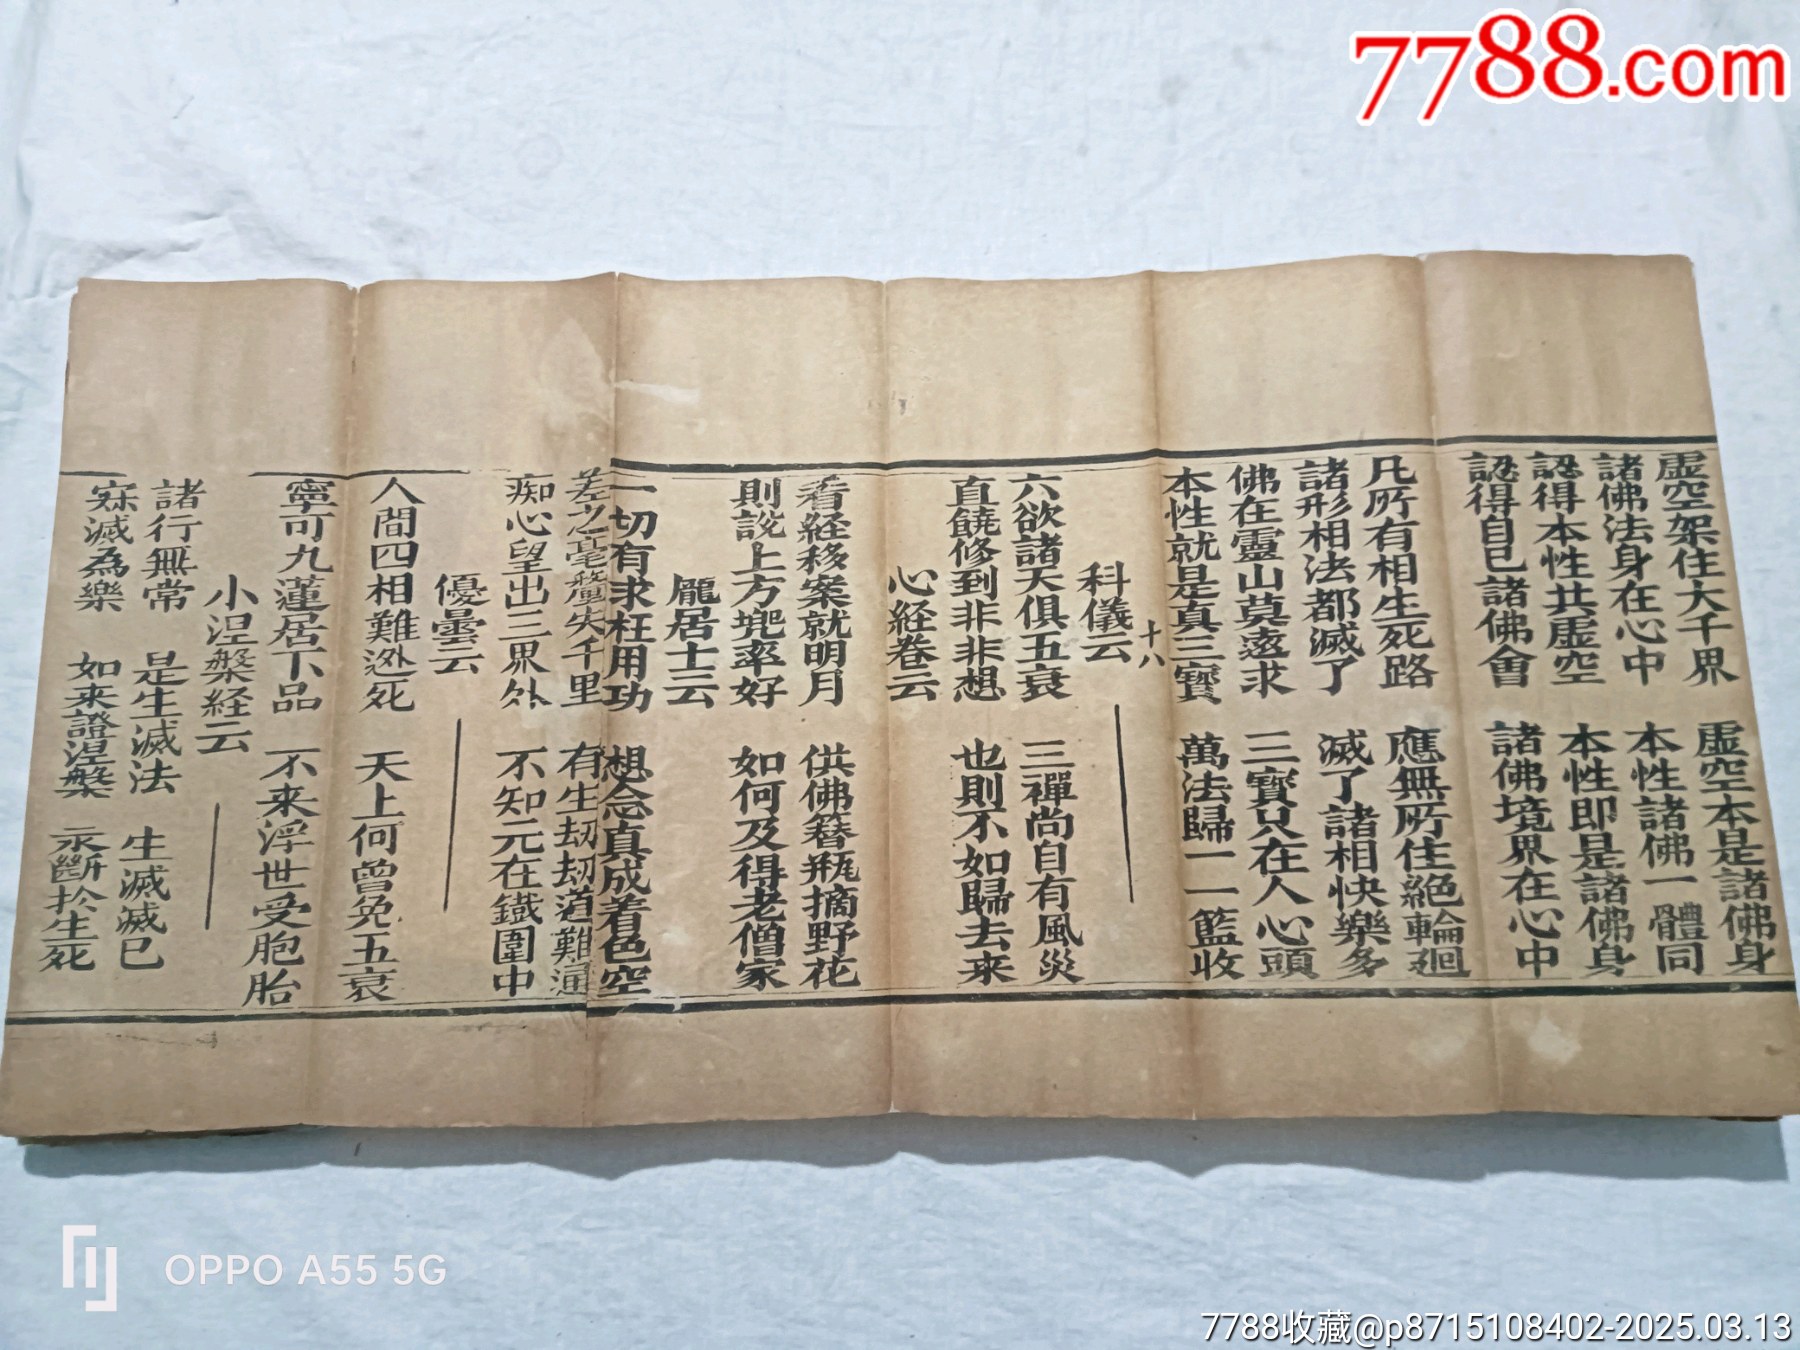 7788.com
虛空架住大千界　虛空本是諸佛身
諸佛法身在心中　本性諸佛一體同
認得本性共虛空　本性即是諸佛身
認得自己諸佛會　諸佛境界在心中
凡所有相生死路　應無所住絕輪廻
諸形相法都滅了　滅了諸相快樂多
佛在靈山莫遠求　三寶只在人心頭
本性就是真三寶　萬法歸一一籃收
十八
科儀云
六欲諸天俱五衰　三禪尚自有風災
直饒修到非非想　也則不如歸去來
心経卷云
看経移案就明月　供佛簮瓶摘野花
則說上方兠率好　如何及得老僧家
龐居士云
一切有求枉用功　想念真成着色空
差之毫釐失千里　有生劫劫道難通
痴心望出三界外　不知元在鐵圍中
優曇云
人間四相難迯死　天上何曾免五衰
寧可九蓮居下品　不来浮世受胞胎
小涅槃経云
諸行無常　是生滅法　生滅滅已
寂滅為樂　如来證涅槃　永斷於生死
OPPO A55 5G
7788收藏@p8715108402-2025.03.13